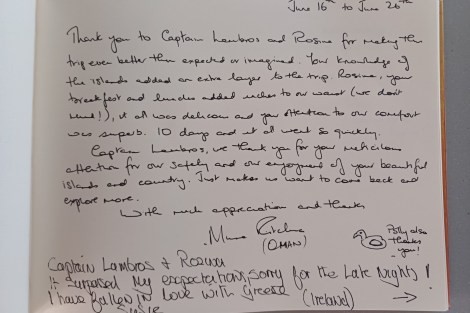 June 16th to June 26th
Thank you to Captain Lambros and Rosine for making the
trip even better than expected or imagined. Your knowledge of
the islands added an extra layer to the trip. Rosine, your
breakfast and lunches added inches to our waist (we don't
mind!), it all was delicous and your attention to our comfort
was superb. 10 days and it all went so quickly.
Captain Lambros, we thank you for your meticulous
attention for our safety and our enjoyment of your beautiful
islands and country. Just makes us want to come back and
explore more.
With much appreciation and thanks
(OMAN)
Polly also
thanks
you!
Captain Lambros &
It surpased My expectations, sorry for the Late Nights!
I have fallen in Love with Greece (Ireland) →